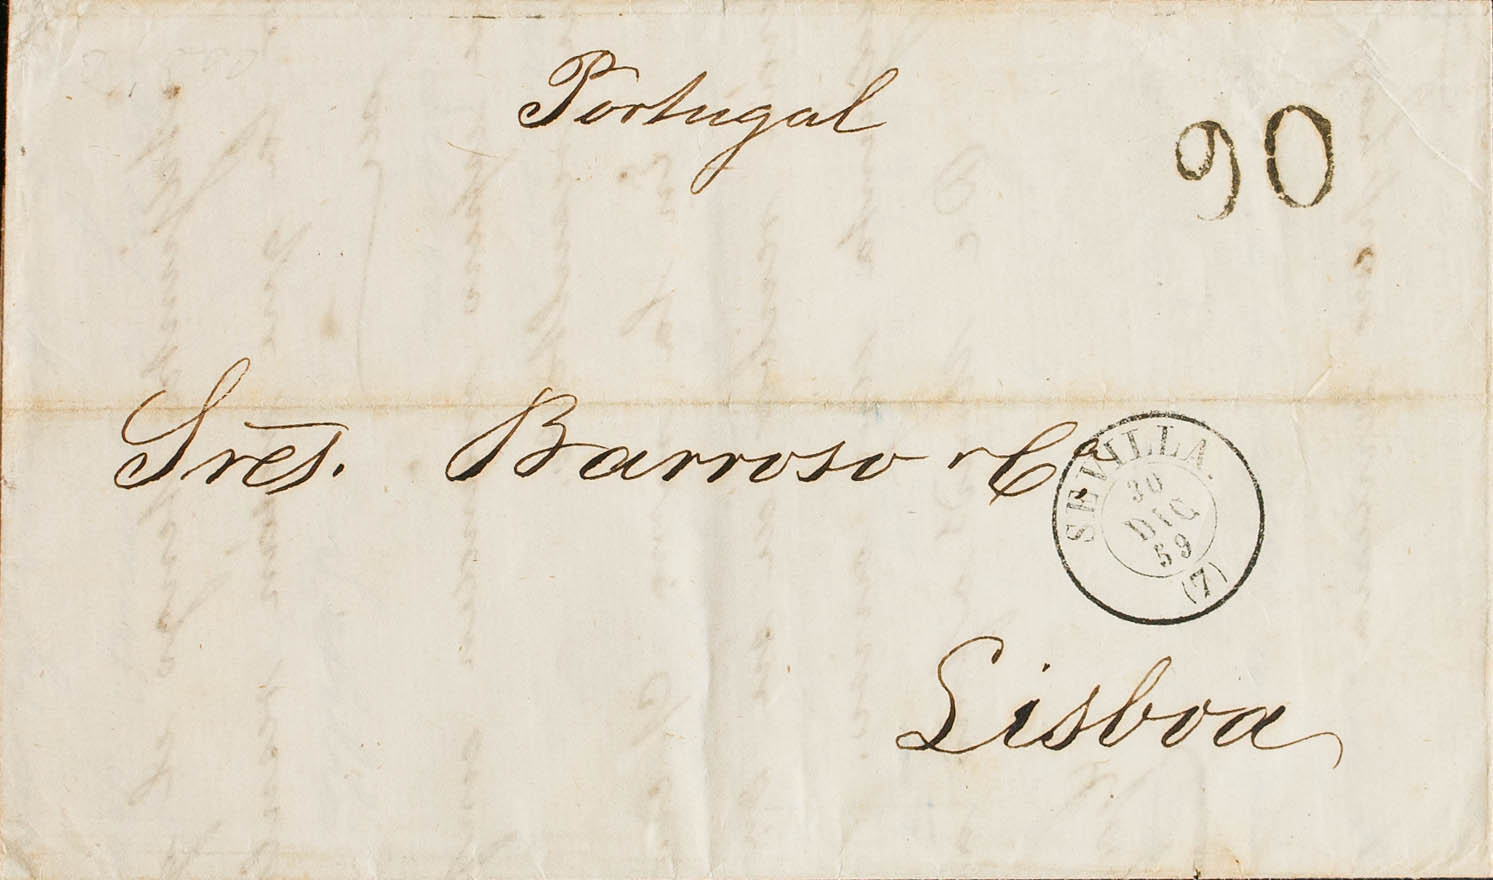 Portugal
90
Sres. Barroso y Ca
SEVILLA.
30
DIC
59
(7)
Lisboa